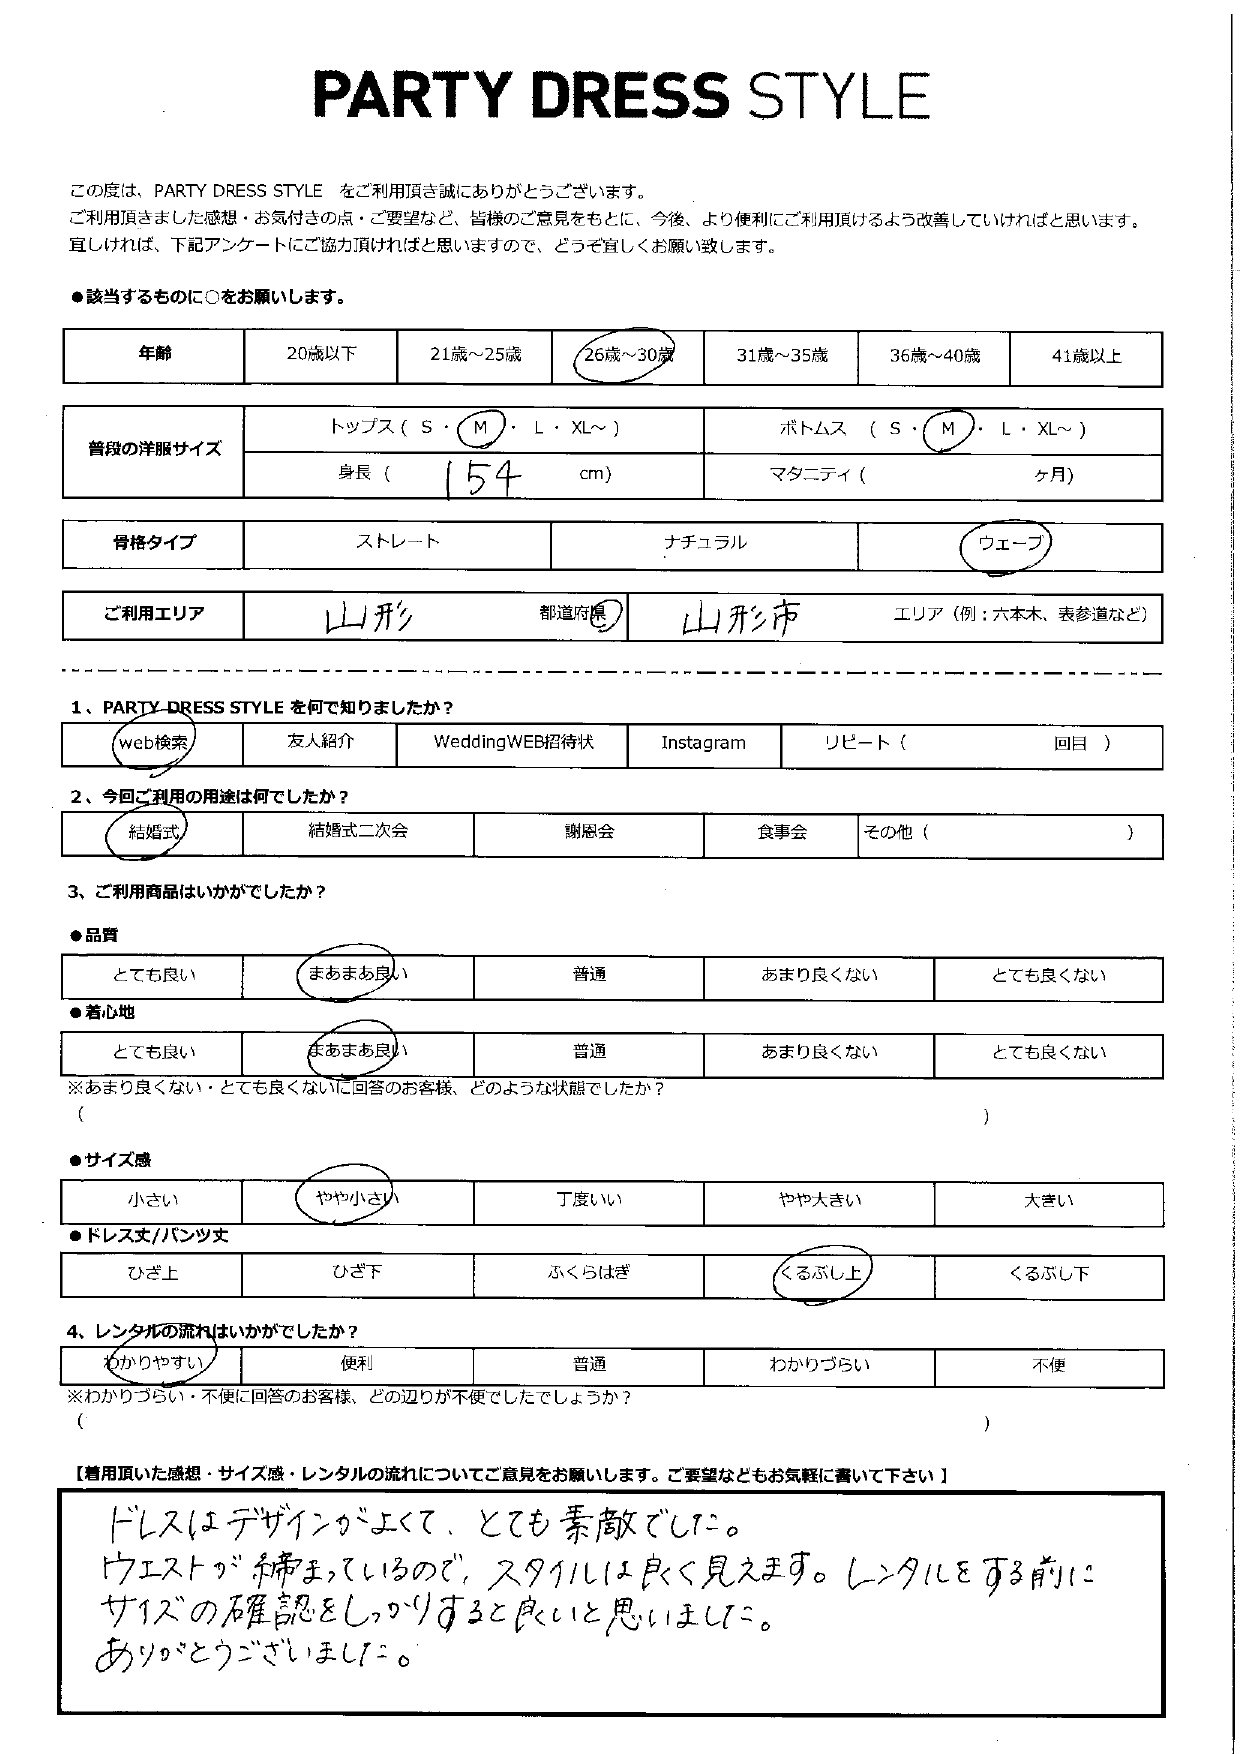 PARTY DRESS STYLE
この度は、PARTY DRESS STYLE をご利用頂き誠にありがとうございます。
ご利用頂きました感想・お気付きの点・ご要望など、皆様のご意見をもとに、今後、より便利にご利用頂けるよう改善していければと思います。
宜しければ、下記アンケートにご協力頂ければと思いますので、どうぞ宜しくお願い致します。
●該当するものに○をお願いします。
年齢 20歳以下 21歳～25歳 26歳～30歳 31歳～35歳 36歳～40歳 41歳以上
普段の洋服サイズ トップス ( S ・ M ・ L ・ XL～ ) ボトムス ( S ・ M ・ L ・ XL～ )
身長 ( 154 cm) マタニティ ( ヶ月)
骨格タイプ ストレート ナチュラル ウェーブ
ご利用エリア 山形 都道府県 山形市 エリア（例：六本木、表参道など）
1、PARTY DRESS STYLE を何で知りましたか？
web検索 友人紹介 WeddingWEB招待状 Instagram リピート ( 回目 )
2、今回ご利用の用途は何でしたか？
結婚式 結婚式二次会 謝恩会 食事会 その他 ( )
3、ご利用商品はいかがでしたか？
●品質
とても良い まあまあ良い 普通 あまり良くない とても良くない
●着心地
とても良い まあまあ良い 普通 あまり良くない とても良くない
※あまり良くない・とても良くないに回答のお客様、どのような状態でしたか？
( )
●サイズ感
小さい やや小さい 丁度いい やや大きい 大きい
●ドレス丈/パンツ丈
ひざ上 ひざ下 ふくらはぎ くるぶし上 くるぶし下
4、レンタルの流れはいかがでしたか？
わかりやすい 便利 普通 わかりづらい 不便
※わかりづらい・不便に回答のお客様、どの辺りが不便でしたでしょうか？
( )
【着用頂いた感想・サイズ感・レンタルの流れについてご意見をお願いします。ご要望などもお気軽に書いて下さい】
ドレスはデザインがよくて、とても素敵でした。
ウエストが締まっているので、スタイルは良く見えます。レンタルをする前に
サイズの確認をしっかりすると良いと思いました。
ありがとうございました。